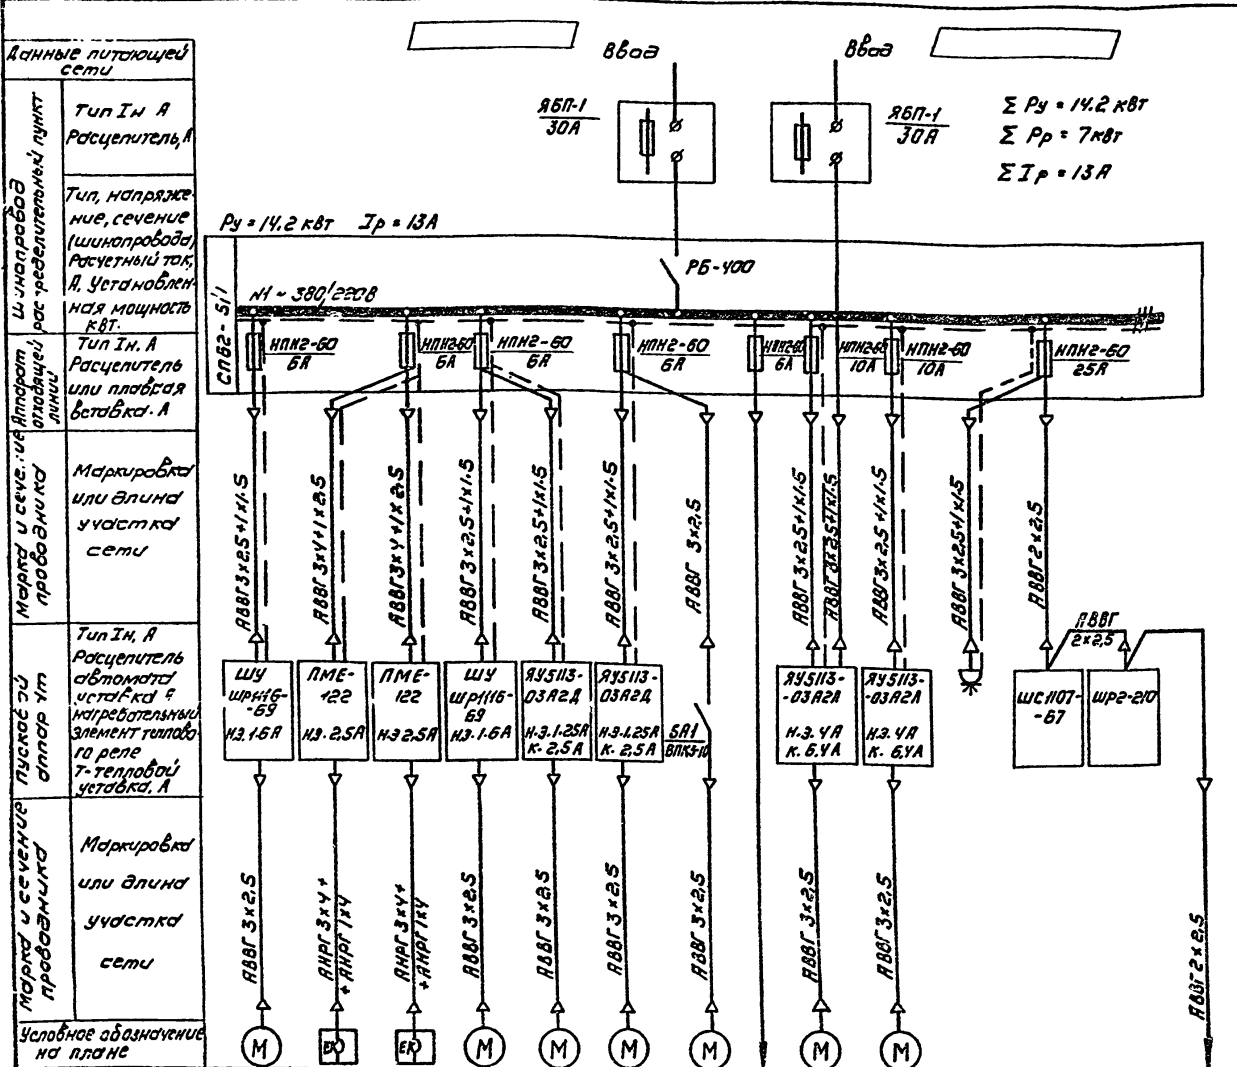 Данные питающей
сети
Шинопровод
распределительный пункт
Тип Iн А
Расцепитель, А
Тип, напряже-
ние, сечение
(шинопровода)
Расчетный ток,
А. Установлен-
ная мощность
кВт.
Аппарат
отходящей
линии
Тип Iн. А
Расцепитель
или плавкая
вставка. А
Марка и сечение
проводника
Маркировка
или длина
участка
сети
Пусковой
аппарат
Тип Iн, А
Расцепитель
автомата
уставка
нагревательный
элемент теплово-
го реле
Т-тепловой
уставка, А
Марка и сечение
проводника
Маркировка
или длина
участка
сети
Условное обозначение
на плане
Ввод
Ввод
ЯБП-1
30А
ЯБП-1
30А
Σ Ру = 14.2 кВт
Σ Рр = 7кВт
Σ Iр = 13А
Ру = 14.2 кВт Iр = 13А
РБ-400
СПБ2-5/1
N1 ~ 380/220В
НПН2-60
6А
НПН2-60
6А
НПН2-60
6А
НПН2-60
6А
НПН2-60
6А
НПН2-60
10А
НПН2-60
10А
НПН2-60
25А
АВВГ 3×2.5+1×1.5
АВВГ 3×4+1×2.5
АВВГ 3×4+1×2.5
АВВГ 3×2.5+1×1.5
АВВГ 3×2.5+1×1.5
АВВГ 3×2.5+1×1.5
АВВГ 3×2.5
АВВГ 3×2.5+1×1.5
АВВГ 3×2.5+1×1.5
АВВГ 3×2.5+1×1.5
АВВГ 3×2.5+1×1.5
АВВГ 2×2.5
АВВГ
2×2.5
ШУ
ШР1116-
-69
н.э. 1.6А
ПМЕ-
122
н.э. 2.5А
ПМЕ-
122
н.э 2.5А
ШУ
ШР1116-
69
н.э. 1.6А
ЯУ5113-
-03А2Д
н.э. 1.25А
К. 2,5А
ЯУ5113-
-03А2Д
н.э. 1.25А
К. 2,5А
SA1
ВПК3-10
ЯУ5113-
-03А2А
н.э. 4А
К. 6.4А
ЯУ5113-
-03А2А
н.э. 4А
К. 6,4А
ШС1107-
-67
ШР2-210
АВВГ 3×2.5
АНРГ 3×4+
+АНРГ 1×4
АНРГ 3×4+
+АНРГ 1×4
АВВГ 3×2.5
АВВГ 3×2.5
АВВГ 3×2.5
АВВГ 3×2.5
АВВГ 3×2.5
АВВГ 3×2.5
АВВГ 2×2.5
М
ЕК
ЕК
М
М
М
М
М
М